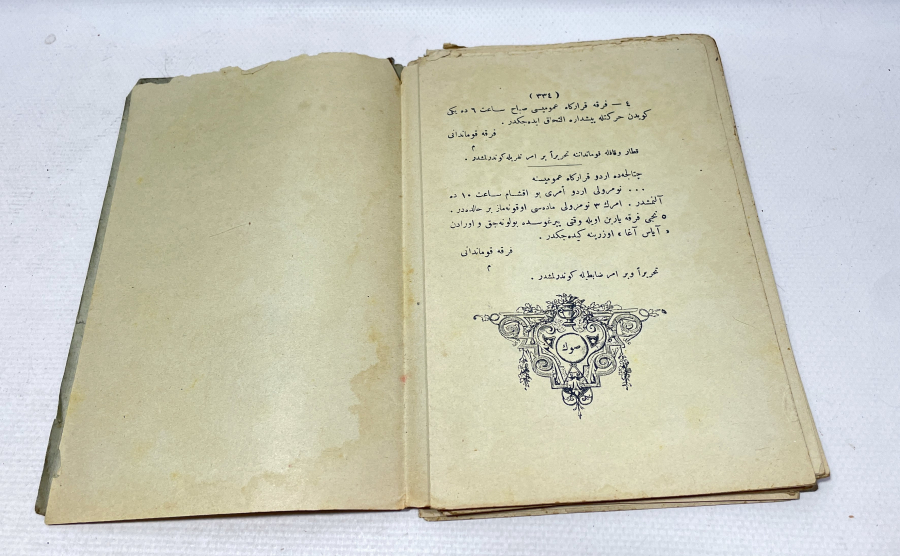 ( ٣٣٤ )
٤ — فرقه قرارگاه عموميسى صباح ساعت ٦ ده يكى
كويدن حركتله پيشداره التحاق ايده‌جكدر .
فرقه قوماندانى
م
قطار وقافله قوماندانلرينه تحريراً بر امر نفريله كوندرلمشدر .
چتالجه‌ده اردو قرارگاه عموميسنه
... نومرولى اردو امرى بو اقشام ساعت ١٠ ده
آلنمشدر . امرك ٣ نومرولى ماده‌سى اوقونه‌ماز بر حالده‌در .
٥ نجى فرقه يارين اويله وقتى پيرغوسده بولونه‌جق و اورادن
« آياس آغا » اوزرينه كيده‌جكدر .
فرقه قوماندانى
م
تحريراً وبر امر ضابطيله كوندرلمشدر .
صوك